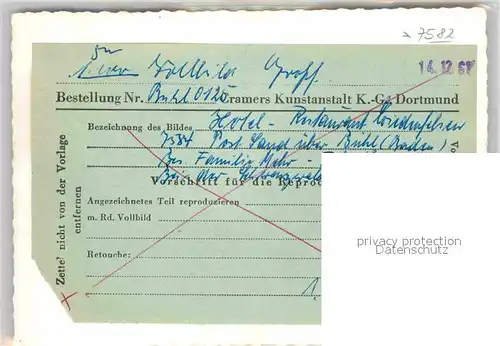 7582
14.12.61
Vollbild
Bestellung Nr. Bühl 0125 Cramers Kunstanstalt K.-G. Dortmund
Bezeichnung des Bildes Hotel - Restaurant
7584 Post Sand über Bühl (Baden)
Bes. Familie
Bei der
Vorschrift für die Repro
Angezeichnetes Teil reproduzieren
m. Rd. Vollbild
Retouche:
1
Zettel nicht von der Vorlage
entfernen
privacy protection
www.ansichtskartenversand.com